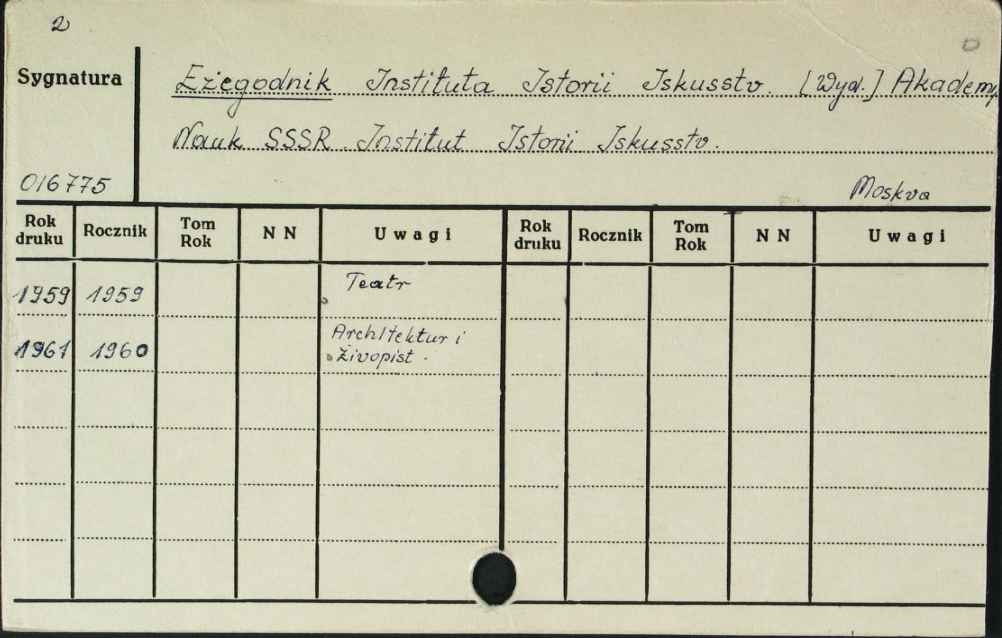 2
Sygnatura
Eżegodnik Instituta Istorii Iskusstv. [Wyd.] Akadem.
Nauk SSSR. Institut Istorii Iskusstv.
016775
Moskva
Rok druku Rocznik Tom Rok NN Uwagi Rok druku Rocznik Tom Rok NN Uwagi
1959 1959 Teatr
1961 1960 Architektur i
živopist.